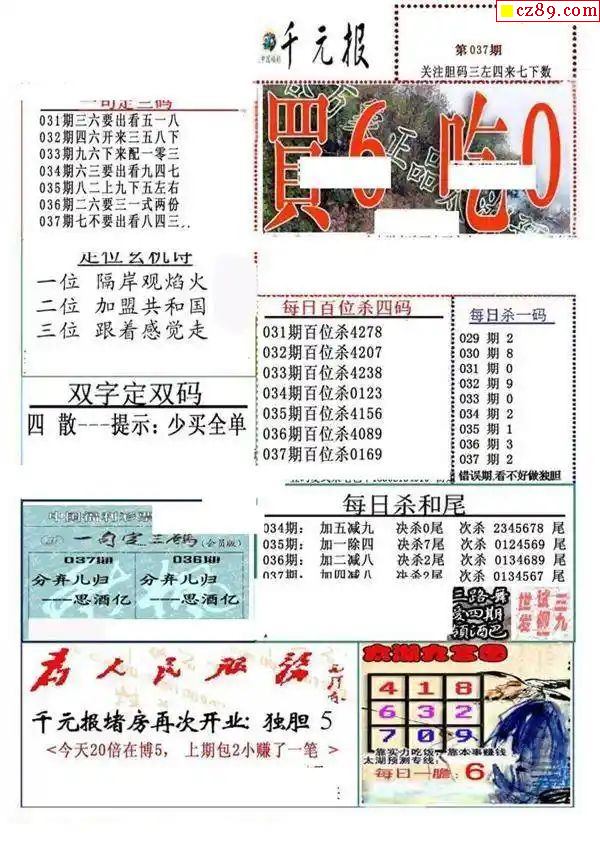 cz89.com
千元报
第037期
关注胆码三左四来七下数
買6吃0
一句定三码
031期三六要出看五一八
032期四六开来三五八下
033期九六下来配一零三
034期六三要出看九四七
035期八二上九下五左右
036期二六要三一式两份
037期七不要出看八四三
定位玄机诗
一位 隔岸观焰火
二位 加盟共和国
三位 跟着感觉走
每日百位杀四码
031期百位杀4278
032期百位杀4207
033期百位杀4238
034期百位杀0123
035期百位杀4156
036期百位杀4089
037期百位杀0169
每日杀一码
029 期 2
030 期 8
031 期 0
032 期 9
033 期 0
034 期 2
035 期 1
036 期 3
037 期 2
错误期,看不好做独胆
双字定双码
四 散---提示:少买全单
中国福利彩票
一句定三码(会员版)
037期
分弃儿归
---思酒亿
036期
分弃儿归
---思酒亿
每日杀和尾
034期: 加五减九 决杀0尾 次杀 2345678 尾
035期: 加一除四 决杀7尾 次杀 0124569 尾
036期: 加二减八 决杀2尾 次杀 0134689 尾
037期: 加四减八 决杀2尾 次杀 0134567 尾
三路舞
爱四期
顿酒巴
为人民服务
千元报堵房再次开业:独胆 5
<今天20倍在博5, 上期包2小赚了一笔 >
太湖九宫图
4 1 8
6 3 2
7 0 9
靠实力吃饭,靠本事赚钱
太湖预测专线:
每日一胆: 6